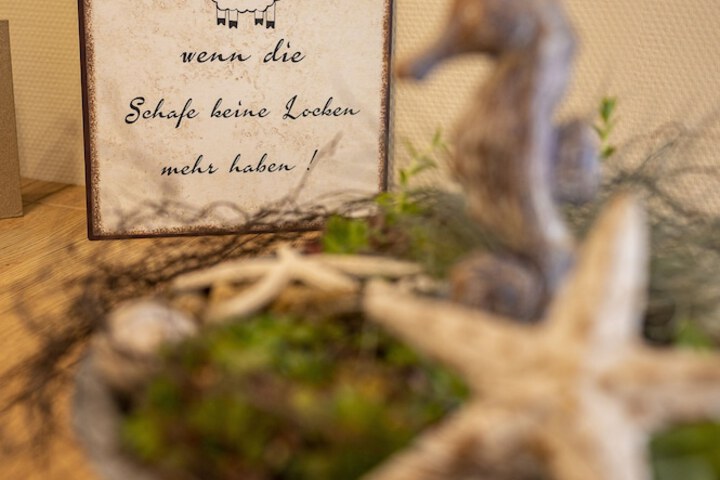 wenn die
Schafe keine Locken
mehr haben !